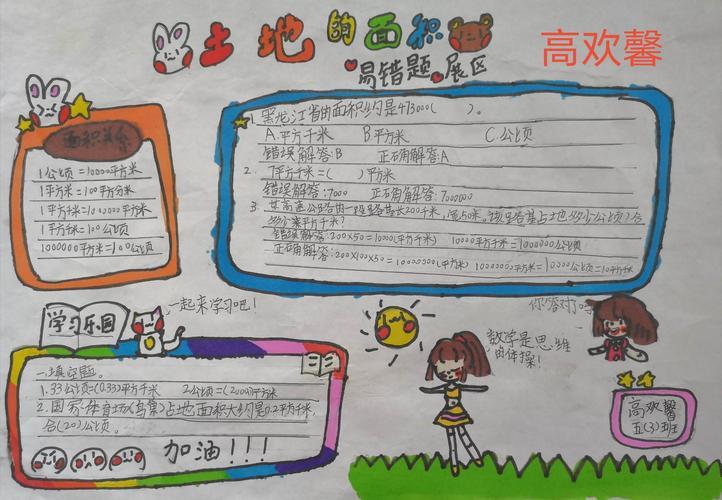 土地的面积
易错题展区
高欢馨
面积关系
1公顷=10000平方米
1平方米=100平方分米
1平方千米=1000000平方米
1平方千米=100公顷
1000000平方米=100公顷
1.黑龙江省的面积约是473000( )。
A.平方千米 B.平方米 C.公顷
错误解答:B 正确解答:A
2. 7平方千米=( )平方米
错误解答:7000 正确解答:7000000
3.某高速公路的一段路基长200千米,宽50米。该段路基占地多少公顷?合
多少平方千米?
错误解答:200×50=10000(平方千米) 10000平方千米=1000000公顷
正确解答:
学习乐园
一起来学习吧!
一.填空题。
1.33公顷=(0.33)平方千米 2公顷=(20000)平方米
2.国家体育场(鸟巢)占地面积大约是0.2平方千米,
合(20)公顷。
加油!!!
你答对了吗
数学是思维
的体操!
高欢馨
五(3)班